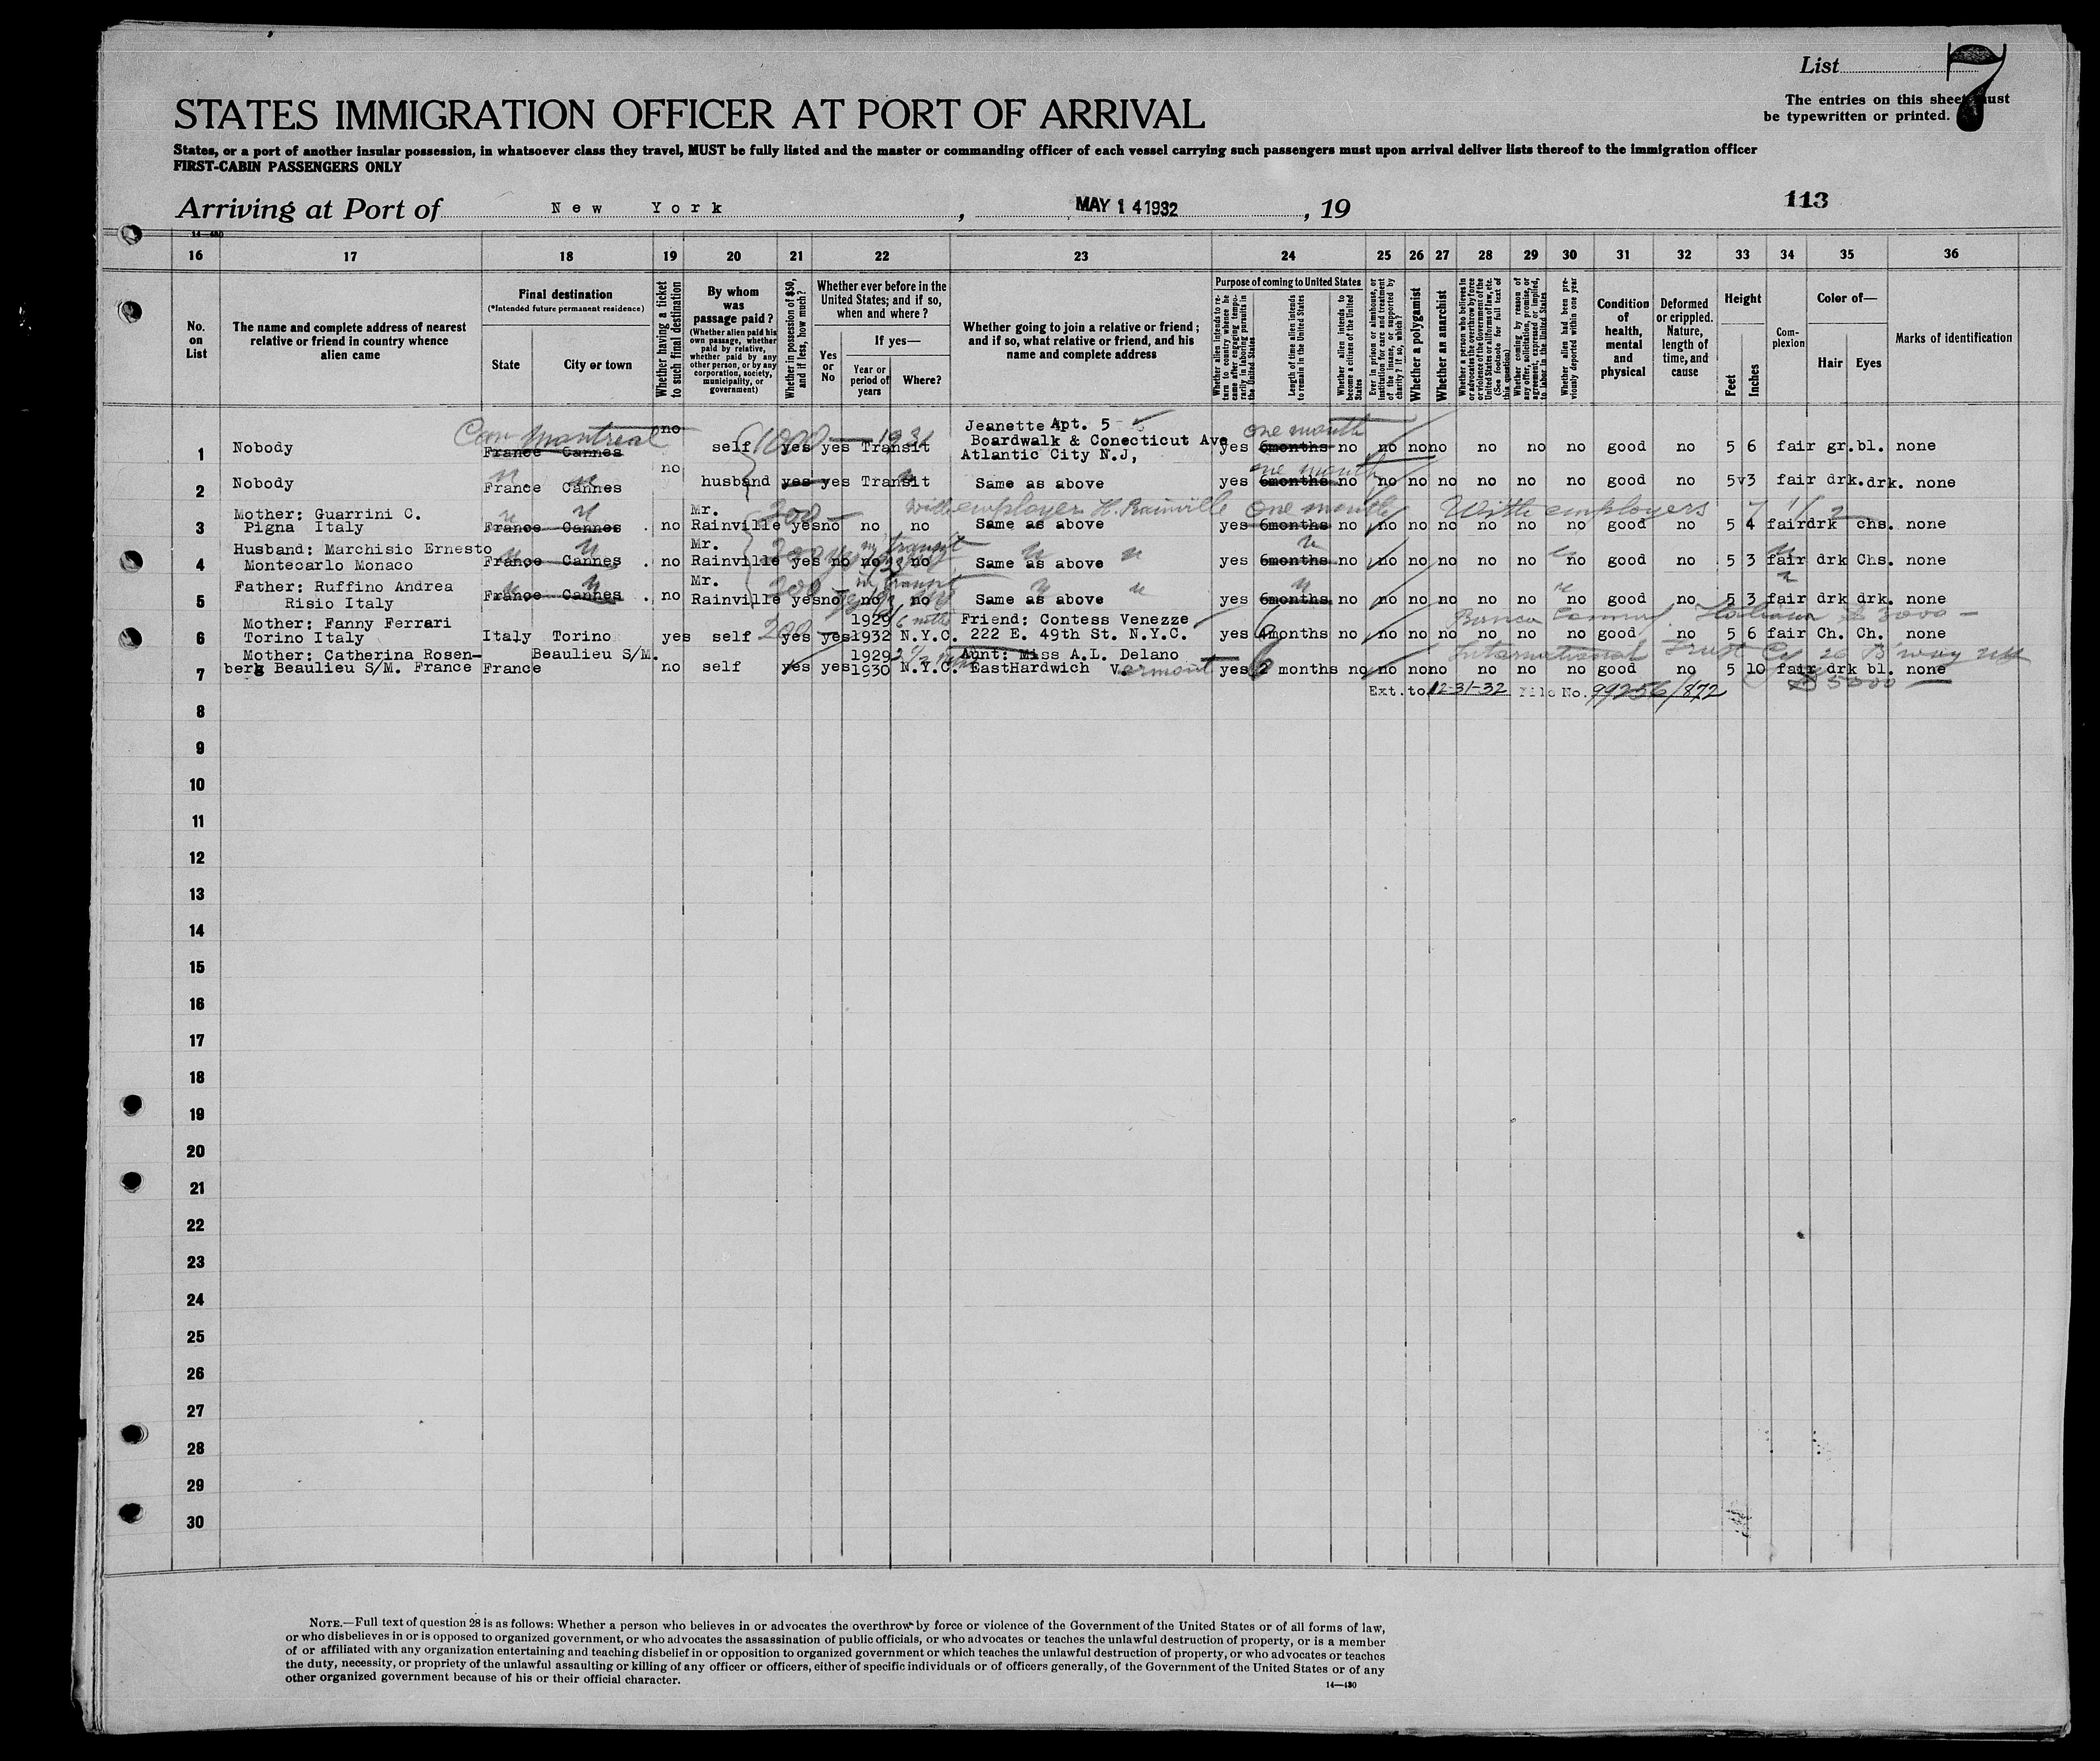 List 7
The entries on this sheet must
be typewritten or printed.
STATES IMMIGRATION OFFICER AT PORT OF ARRIVAL
States, or a port of another insular possession, in whatsoever class they travel, MUST be fully listed and the master or commanding officer of each vessel carrying such passengers must upon arrival deliver lists thereof to the immigration officer
FIRST-CABIN PASSENGERS ONLY
Arriving at Port of New York, MAY 14 1932, 19
113
14—430
16 17 18 19 20 21 22 23 24 25 26 27 28 29 30 31 32 33 34 35 36
No. on List
The name and complete address of nearest relative or friend in country whence alien came
Final destination
(*Intended future permanent residence)
State
City or town
Whether having a ticket to such final destination
By whom was passage paid?
(Whether alien paid his own passage, whether paid by relative, whether paid by any other person, or by any corporation, society, municipality, or government)
Whether in possession of $50, and if less, how much?
Whether ever before in the United States; and if so, when and where?
Yes or No
If yes—
Year or period of years
Where?
Whether going to join a relative or friend; and if so, what relative or friend, and his name and complete address
Purpose of coming to United States
Whether alien intends to return to country whence he came after engaging temporarily in laboring pursuits in the United States
Length of time alien intends to remain in the United States
Whether alien intends to become a citizen of the United States
Ever in prison or almshouse, or institution for care and treatment of the insane, or supported by charity? If so, which?
Whether a polygamist
Whether an anarchist
Whether a person who believes in or advocates the overthrow by force or violence of the Government of the United States or all forms of law, etc. (See footnote for full text of this question)
Whether coming by reason of any offer, solicitation, promise, or agreement, expressed or implied, to labor in the United States
Whether alien had been previously deported within one year
Condition of health, mental and physical
Deformed or crippled. Nature, length of time, and cause
Height
Feet
Inches
Complexion
Color of—
Hair
Eyes
Marks of identification
Can Montreal no 1000 — 1931 Jeanette Apt. 5 one month
1 Nobody France Cannes self yes yes Transit Boardwalk & Conecticut Ave yes 6months no no no no no no no good no 5 6 fair gr. bl. none
Atlantic City N.J,
no one month
2 Nobody France Cannes husband yes yes Transit Same as above yes 6months no no no no no no no good no 5 3 fair drk. drk. none
Mother: Guarrini C. Mr. 200 — with employer H. Rainville One month With employers
3 Pigna Italy France Cannes . no Rainville yes no no no Same as above yes 6months no no no no no no no good no 5 4 fair drk chs. none
Husband: Marchisio Ernesto Mr. 200 in transit
4 Montecarlo Monaco France Cannes . no Rainville yes no no no Same as above yes 6months no no no no no no no good no 5 3 fair drk Chs. none
Father: Ruffino Andrea Mr. 200 in transit
5 Risio Italy France Cannes . no Rainville yes no no no Same as above yes 6months no no no no no no no good no 5 3 fair drk drk. none
Mother: Fanny Ferrari 200 1929 Friend: Contess Venezze Banca Comm. Italiana $3000 —
6 Torino Italy Italy Torino yes self yes yes 1932 N.Y.C. 222 E. 49th St. N.Y.C. yes 4months no no no no no no no good no 5 6 fair Ch. Ch. none
Mother: Catherina Rosen- Beaulieu S/M. 1929 Aunt: Miss A.L. Delano International Trust Co 26 B'way NY
7 berg Beaulieu S/M. France France no self yes yes 1930 N.Y.C. EastHardwich Vermont yes 6 2 months no no no no no no no good no 5 10 fair drk bl. none
Ext. to 12-31-32 File No. 99256/872 $5000 —
8
9
10
11
12
13
14
15
16
17
18
19
20
21
22
23
24
25
26
27
28
29
30
NOTE.—Full text of question 28 is as follows: Whether a person who believes in or advocates the overthrow by force or violence of the Government of the United States or of all forms of law,
or who disbelieves in or is opposed to organized government, or who advocates the assassination of public officials, or who advocates or teaches the unlawful destruction of property, or is a member
of or affiliated with any organization entertaining and teaching disbelief in or opposition to organized government or which teaches the unlawful destruction of property, or who advocates or teaches
the duty, necessity, or propriety of the unlawful assaulting or killing of any officer or officers, either of specific individuals or of officers generally, of the Government of the United States or of any
other organized government because of his or their official character.
14—430